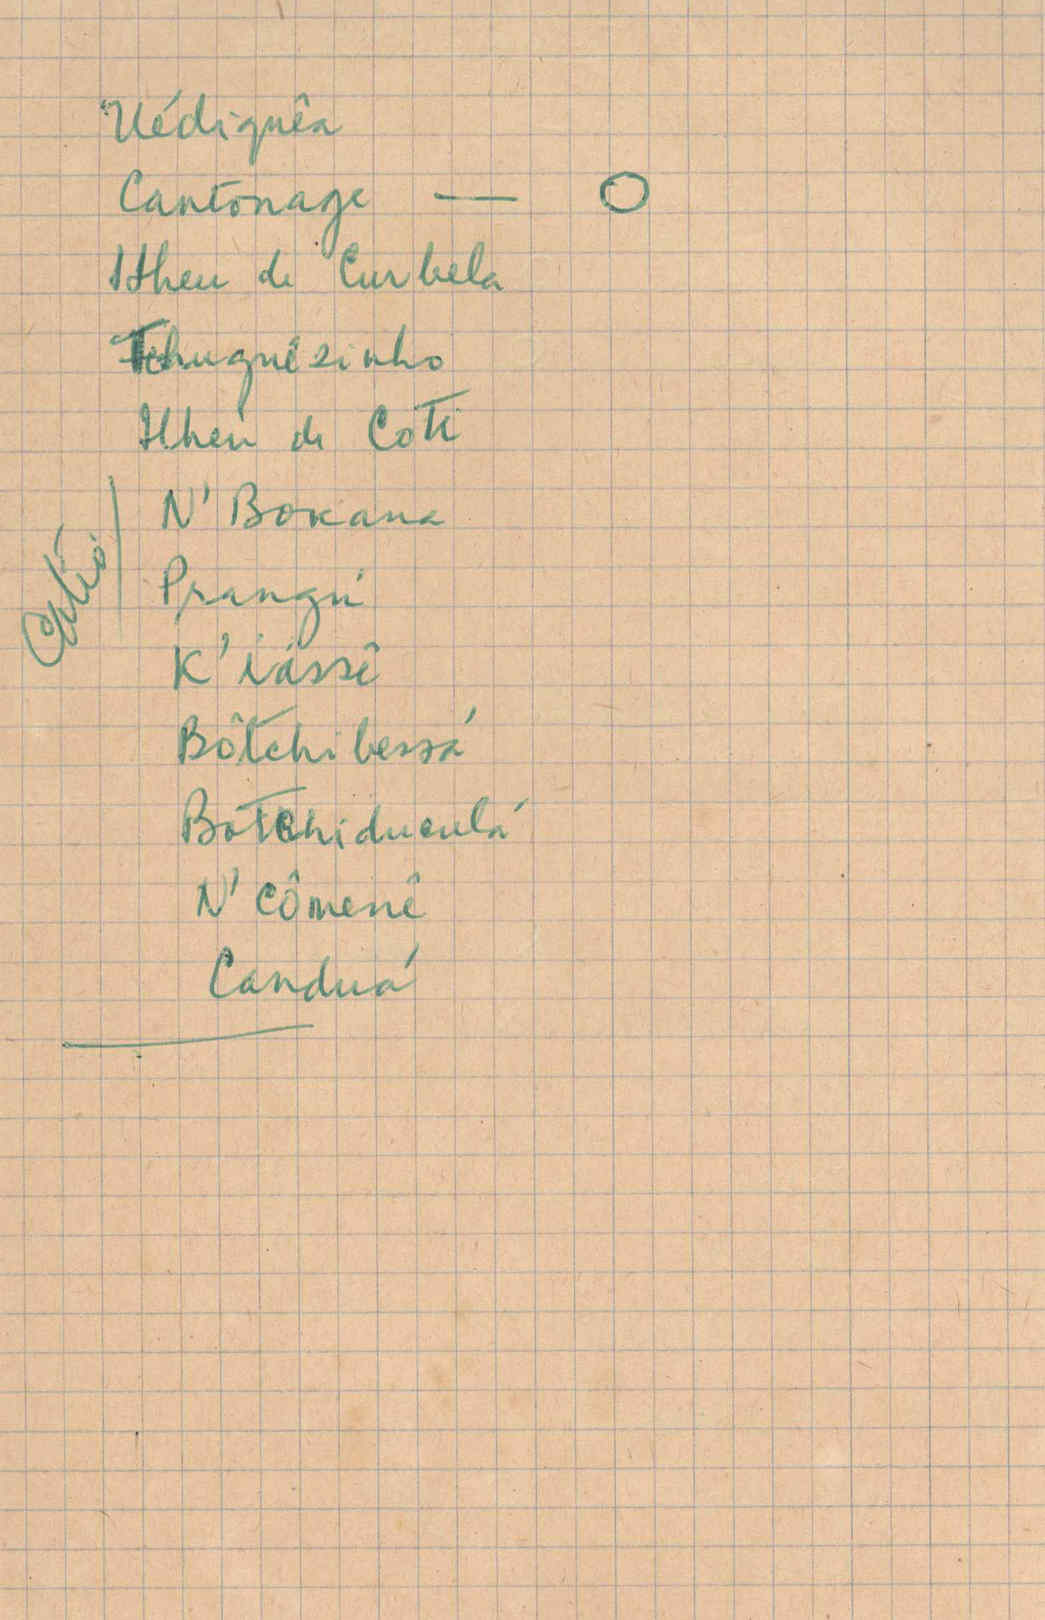 Uédiquêa
Cantonage — O
Ilheu de Curbela
Tchuguêzinho
Ilheu de Coti
Catió
N'Bokana
Prangú
K'iássê
Bôtchibessá
Botchiduculá
N'Cômenê
Canduá